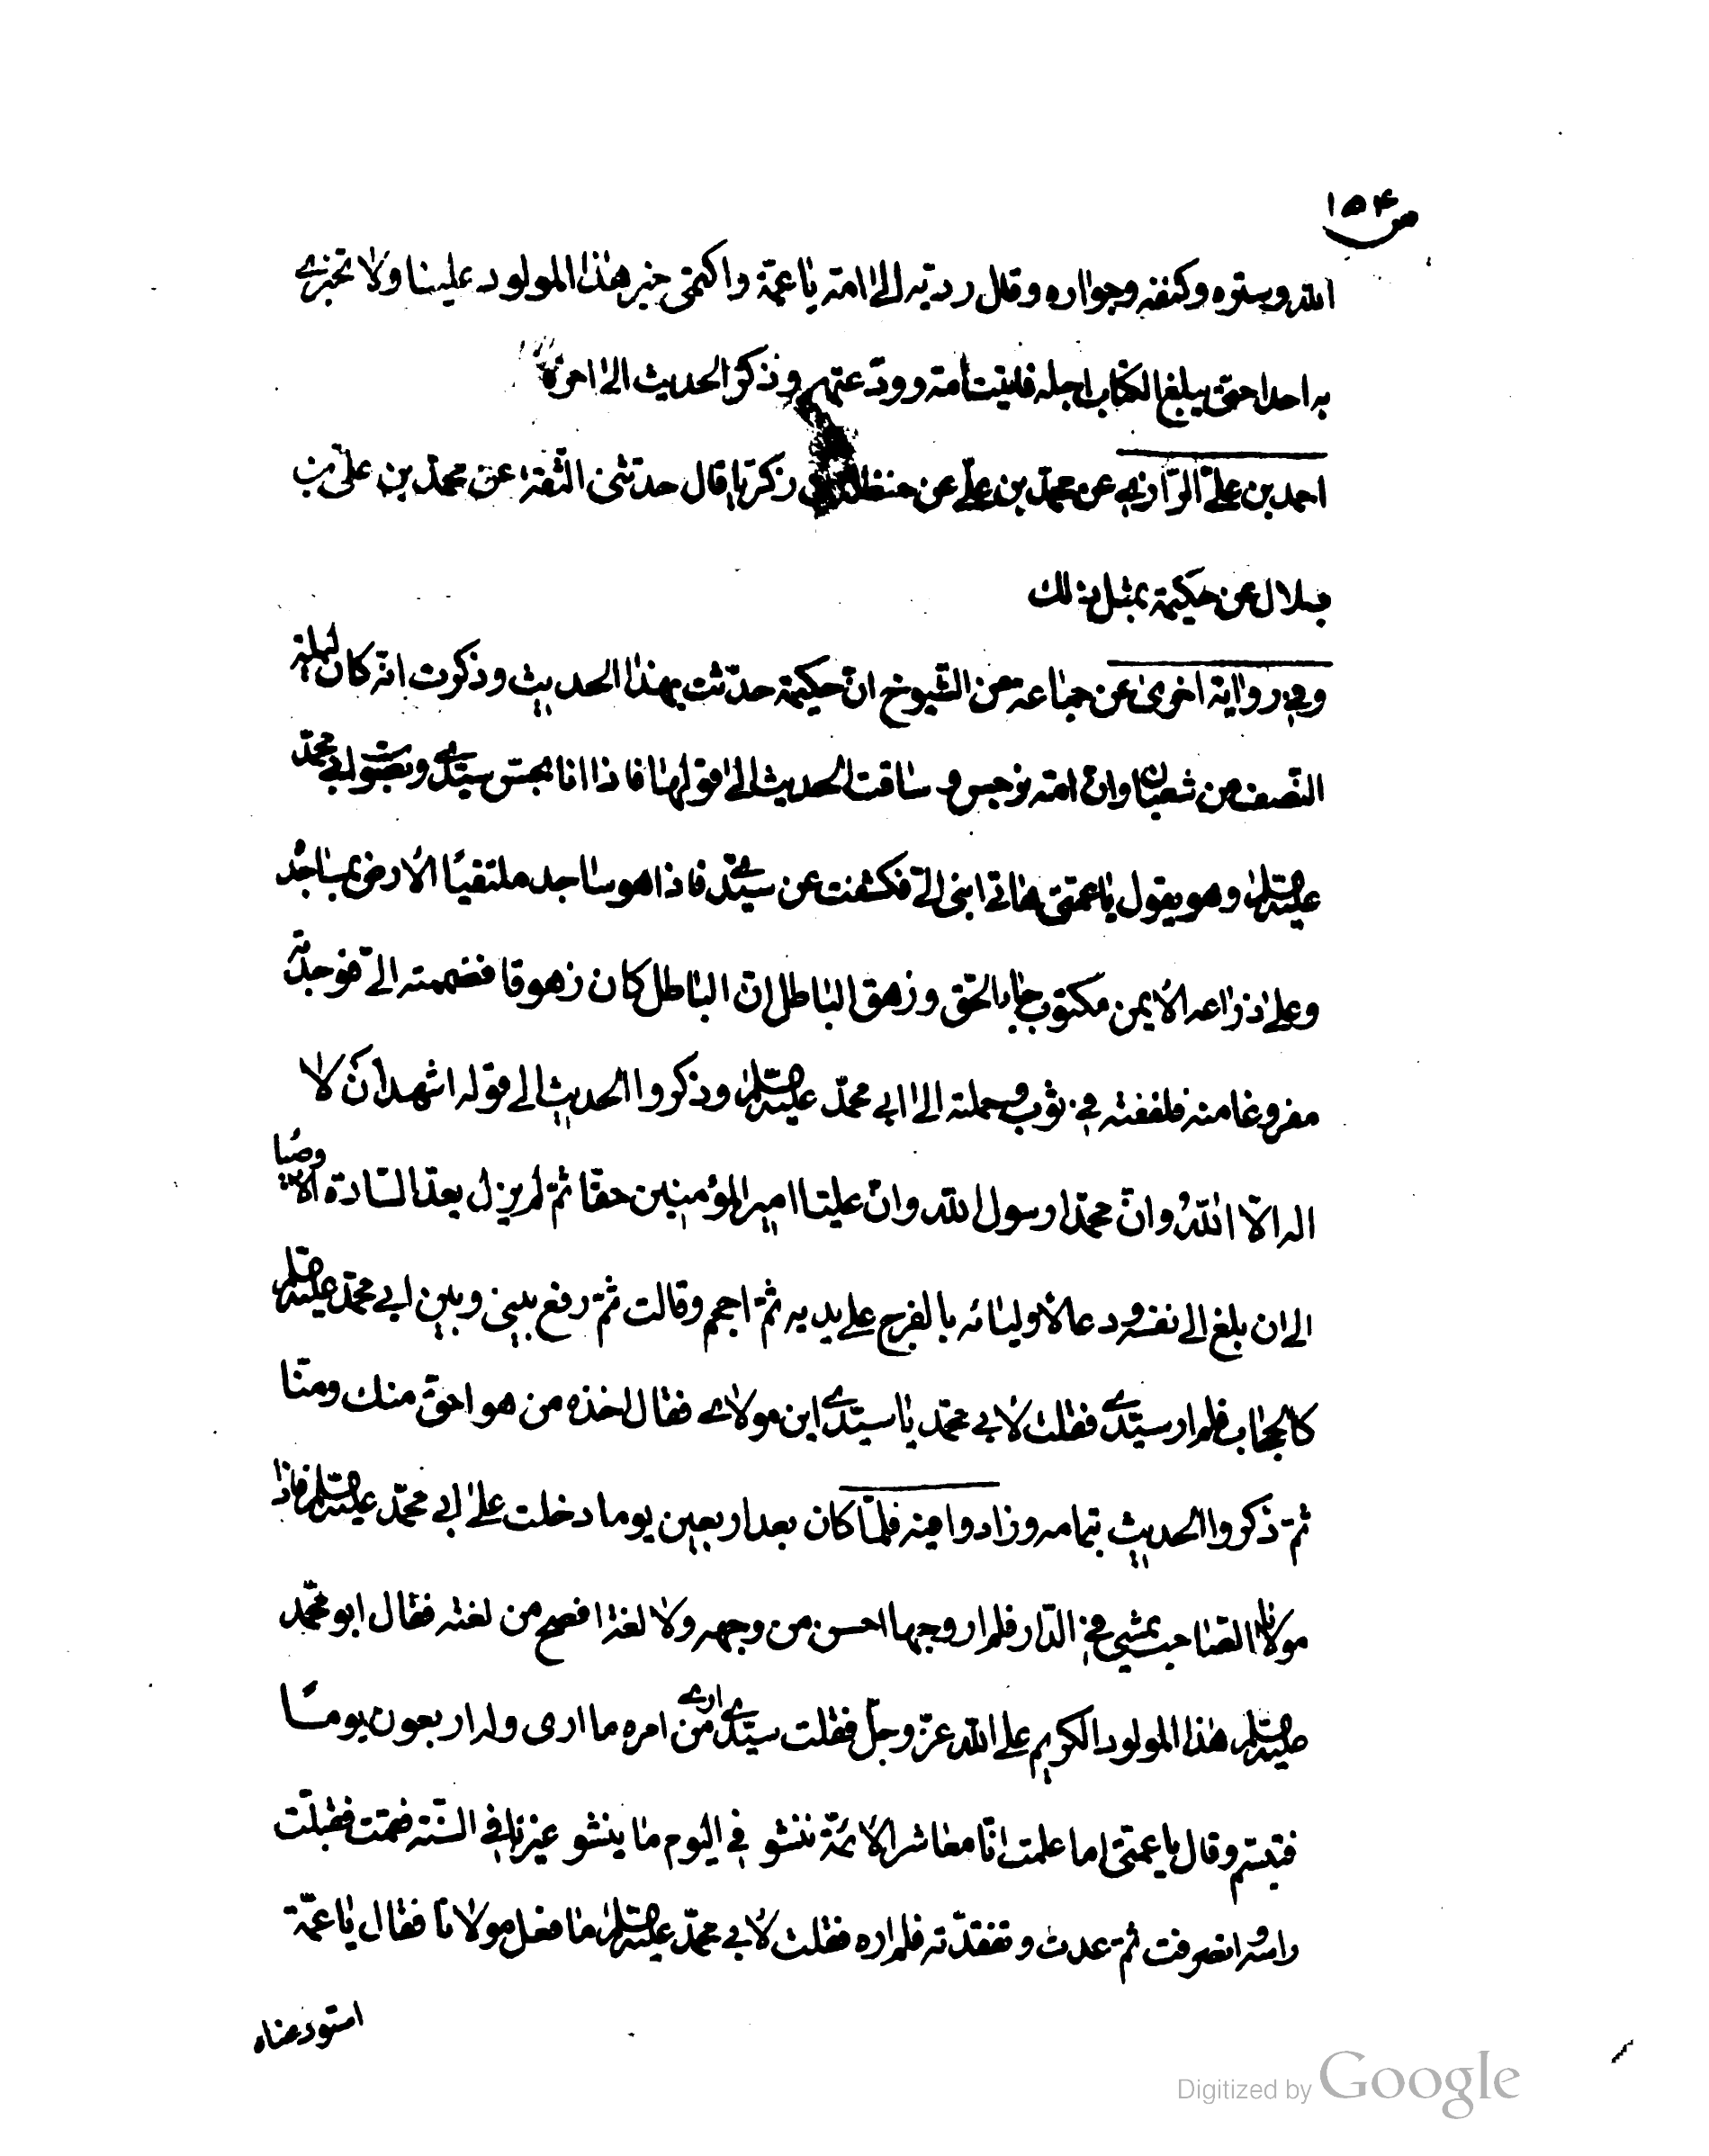 ص ١٥٤
الله وستره وكنفه وجواره وقال رديه الى امه يا عمة واكتمى خبر هذا المولود علينا ولا تخبرى
به احدا حتى يبلغ الكتاب اجله فاتيت امه وودعتهم وذكر الحديث الى اخره
احمد بن على الرازى عن محمد بن على عن حنظلة بن زكريا قال حدثنى الثقة عن محمد بن على بن
بلال عن حكيمة بمثل ذلك
وفى رواية اخرى عن جماعة من الشيوخ ان حكيمة حدثت بهذا الحديث وذكرت انه كان ليلة
النصف من شعبان وان امه نرجس وساقت الحديث الى قولها فاذا انا بحس سيدى وبصوت ابى محمد
عليه السلم وهو يقول يا عمتى هاتى ابنى الى فكشفت عن سيدى فاذا هو ساجد متلقيا الارض بمساجده
وعلى ذراعه الايمن مكتوب جاء الحق وزهق الباطل ان الباطل كان زهوقا فضممته الى فوجدته
مفروغا منه فلففته فى ثوب وحملته الى ابى محمد عليه السلم وذكروا الحديث الى قوله اشهد ان لا
اله الا الله وان محمدا رسول الله وان عليا امير المؤمنين حقا ثم لم يزل يعد السادة الاوصيا
الى ان بلغ الى نفسه ودعا لاوليائه بالفرج على يديه ثم احجم وقالت ثم رفع بينى وبين ابى محمد عليه السلم
كالحجاب فلم ار سيدى فقلت لابى محمد يا سيدى اين مولاى فقال اخذه من هو احق منك ومنا
ثم ذكروا الحديث بتمامه وزادوا فيه فلما كان بعد اربعين يوما دخلت على ابى محمد عليه السلم فاذا
مولانا الصاحب يمشى فى الدار فلم ار وجها احسن من وجهه ولا لغة افصح من لغته فقال ابو محمد
عليه السلم هذا المولود الكريم على الله عز وجل فقلت سيدى ارى من امره ما ارى وله اربعون يوما
فتبسم وقال يا عمتى اما علمت انا معاشر الائمة ننشو فى اليوم ما ينشو غيرنا فى السنة فقمت فقبلت
راسه انصرفت ثم عدت وتفقدته فلم اره فقلت لابى محمد عليه السلم ما فعل مولانا فقال يا عمة
استودعناه
Digitized by Google